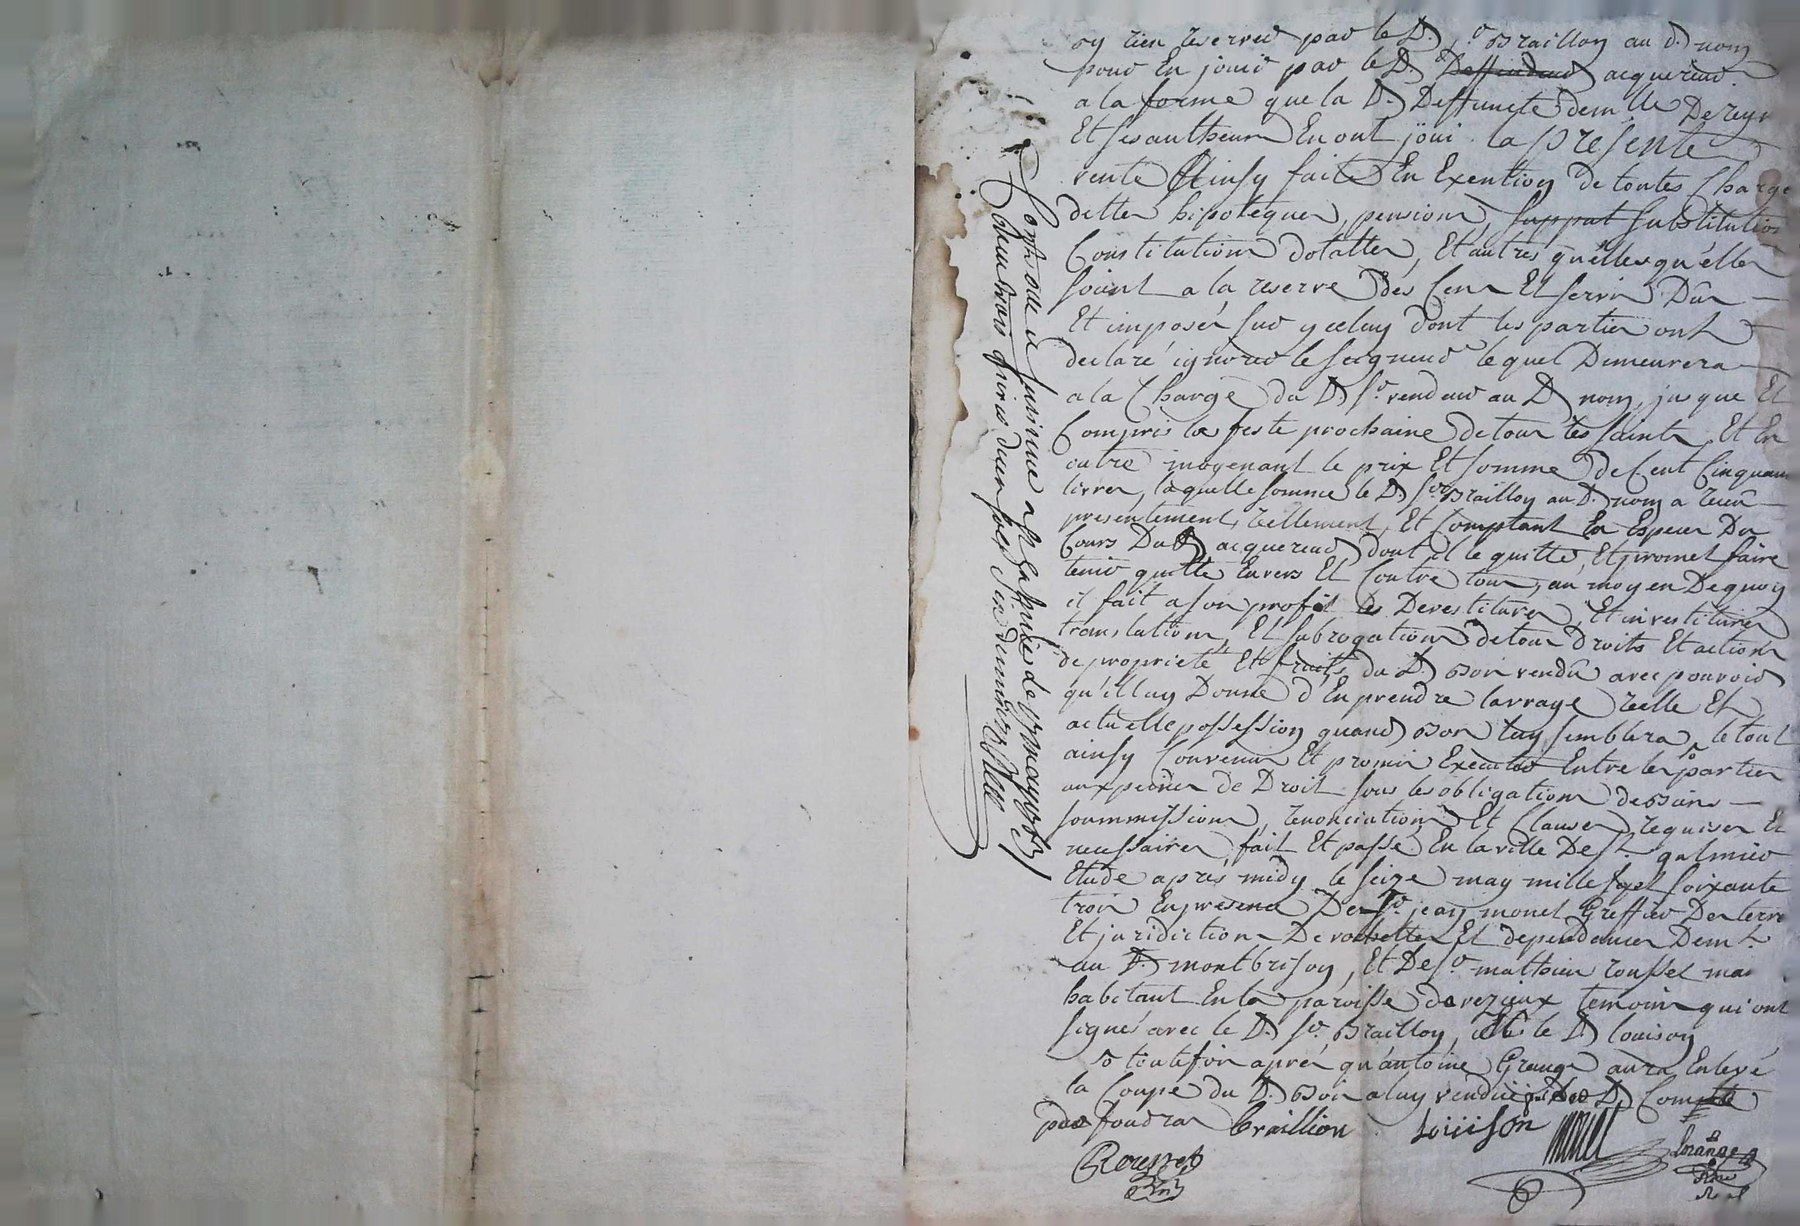 ny rien reservé par le D. Sr Braillon au d. nom
pour en jouir par le D. Deffendeur acquereur
a la forme que la D. Deffuncte demlle Derey
Et ses autheurs En ont joüi la presente
vente Ainsy faite En Exention de toutes Charge
dettes hipoteques, pensions, suppat substitution
Constitutions dotalles, Et autres quelles qu'elles
soient a la reserve des Cens Et servis Dûs
Et imposés sur yceluy dont les parties ont
declaré ignorer le seigneur lequel Demeurera
a la Charge du D. Sr. vendeur au D. nom, jusque Et
Compris la feste prochaine de tous les saints Et En
outre moyenant le prix Et somme de Cent Cinquante
livres, laquelle somme le D. Sr. Braillon au D. nom a reçu
presentement, reellement, Et Comptant En Especes Du
Cours Dud. acquereur dont il le quitte, Et promet faire
tenir quitte Envers Et Contre tous, au moyen Dequoy
il fait a son profit les Devestitures, Et investitures
translations, Et subrogations de tous Droits Et actions
de proprieté Et fruits du D. Bois vendû avec pouvoir
qu'il luy Donne d'En prendre la vraye reelle Et
actuelle possession quand Bon luy semblera le tout
ainsy Convenu Et promis Executer Entre les parties
aux peines de Droit sous les obligations de Biens
soummissions, renonciations Et Clauses requises Et
necessaires, fait Et passé En la ville De St. galmier
Etude apres midy le seize may mille sept soixante
trois En presence De Sr. jean monet Greffier Des terre
Et juridiction De rochette Et dependances Demt.
au D. montbrison, Et De Sr. mathieu rousset
habitant En la paroisse de rezieux temoins qui ont
signés avec le D. Sr. Braillon, le D. louison
toutefois aprés qu'antoine Grange aura Enlevé
la Coupe du D. Bois a luy vendüe D. Compte
pas foudras braillion Louison monet
Rousset Grange
Controllé a
deux trois